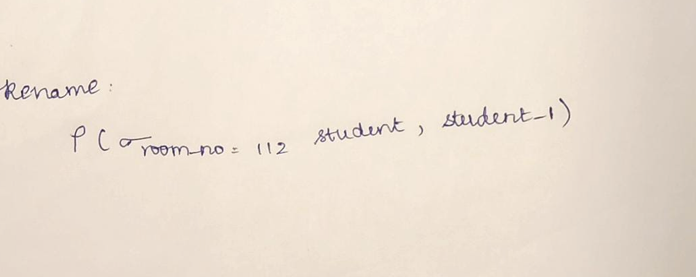 Rename:
ρ(σ room_no = 112 student, student_1)